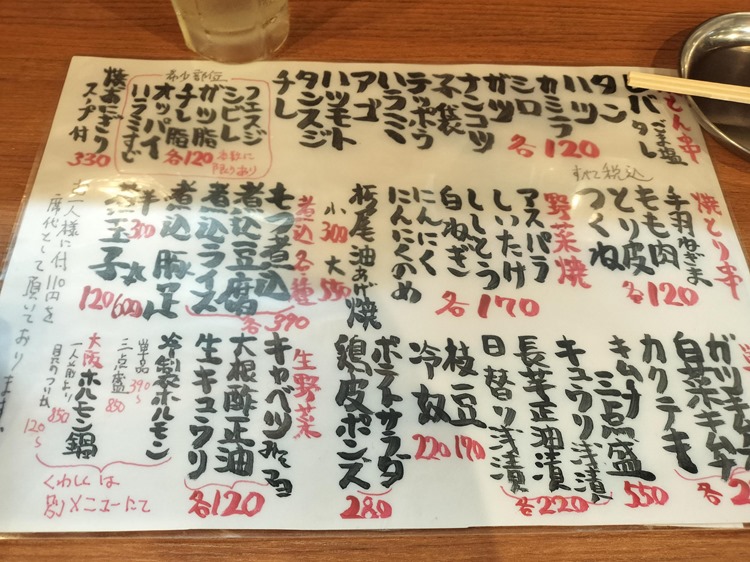 とん串
ごま塩
タレ
レバ
タン
ハツ
カシラ
シロ
ガツ
ナンコツ
子袋
テッポウ
ハラミ
アゴ
ハツモト
タンスジ
チレ
各120
希少部位
フエスジ
シビレ
ガツ脂
チレ脂
オッパイ
ハラミすじ
各120
各数に
限りあり
焼おにぎり
スープ付
330
すべて税込
焼とり串
手羽
ねぎま
もも肉
とり皮
つくね
各120
野菜焼
アスパラ
しいたけ
ししとう
白ねぎ
にんにく
にんにくのめ
各170
栃尾油あげ焼
小300
大550
煮込各種
もつ煮込
煮込豆腐
煮込ライス
煮込豚足
各390
半
330
丸
600
煮玉子
120
お一人様に付110円を
席代として頂いております。
白菜キムチ
カクテキ
キムチ三点盛
550
キュウリ浅漬
長芋正油漬
日替り浅漬
各220
枝豆
190
冷奴
220
ポテトサラダ
鶏皮ポンズ
280
生野菜
キャベツ
みそ
大根酢正油
生キュウリ
各120
冷製ホルモン
単品390~
三点盛850
大阪ホルモン鍋
一人前より850
120~
くわしくは
別メニューにて